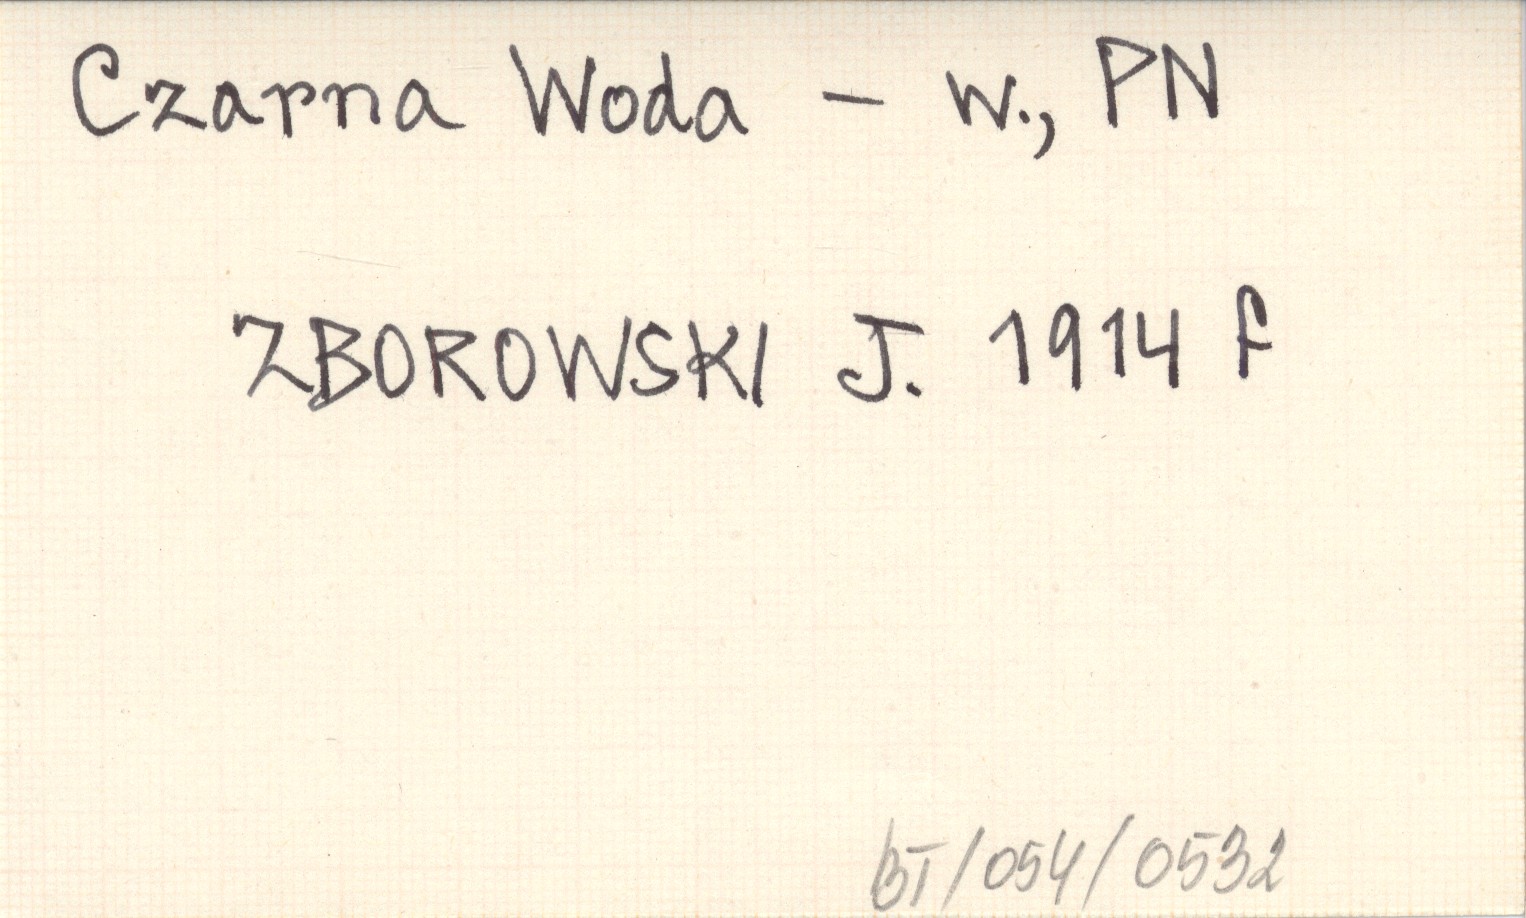 Czarna Woda – w., PN
ZBOROWSKI J. 1914 f
BT/054/0532